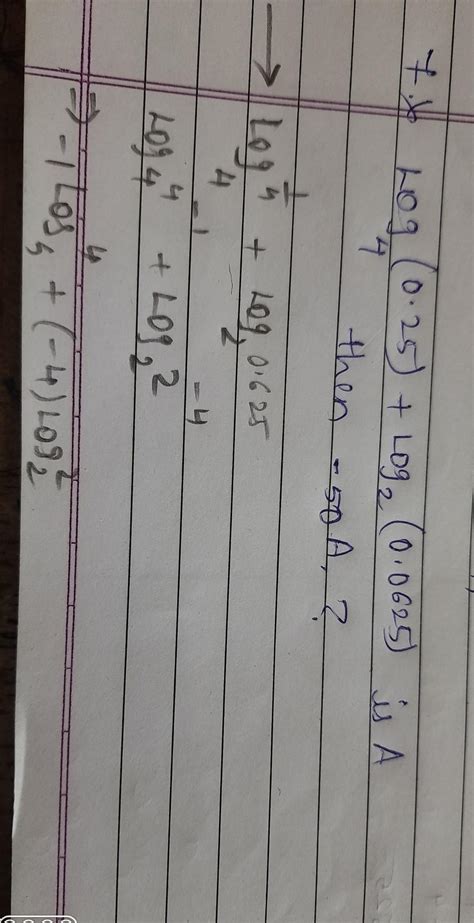 7.* Log₄(0.25) + Log₂(0.0625) is A
then -50A, ?
→ Log₄ 1/4 + Log₂ 0.625
Log₄ 4⁻¹ + Log₂ 2⁻⁴
⇒ -1 Log₄ 4 + (-4) Log₂ 2